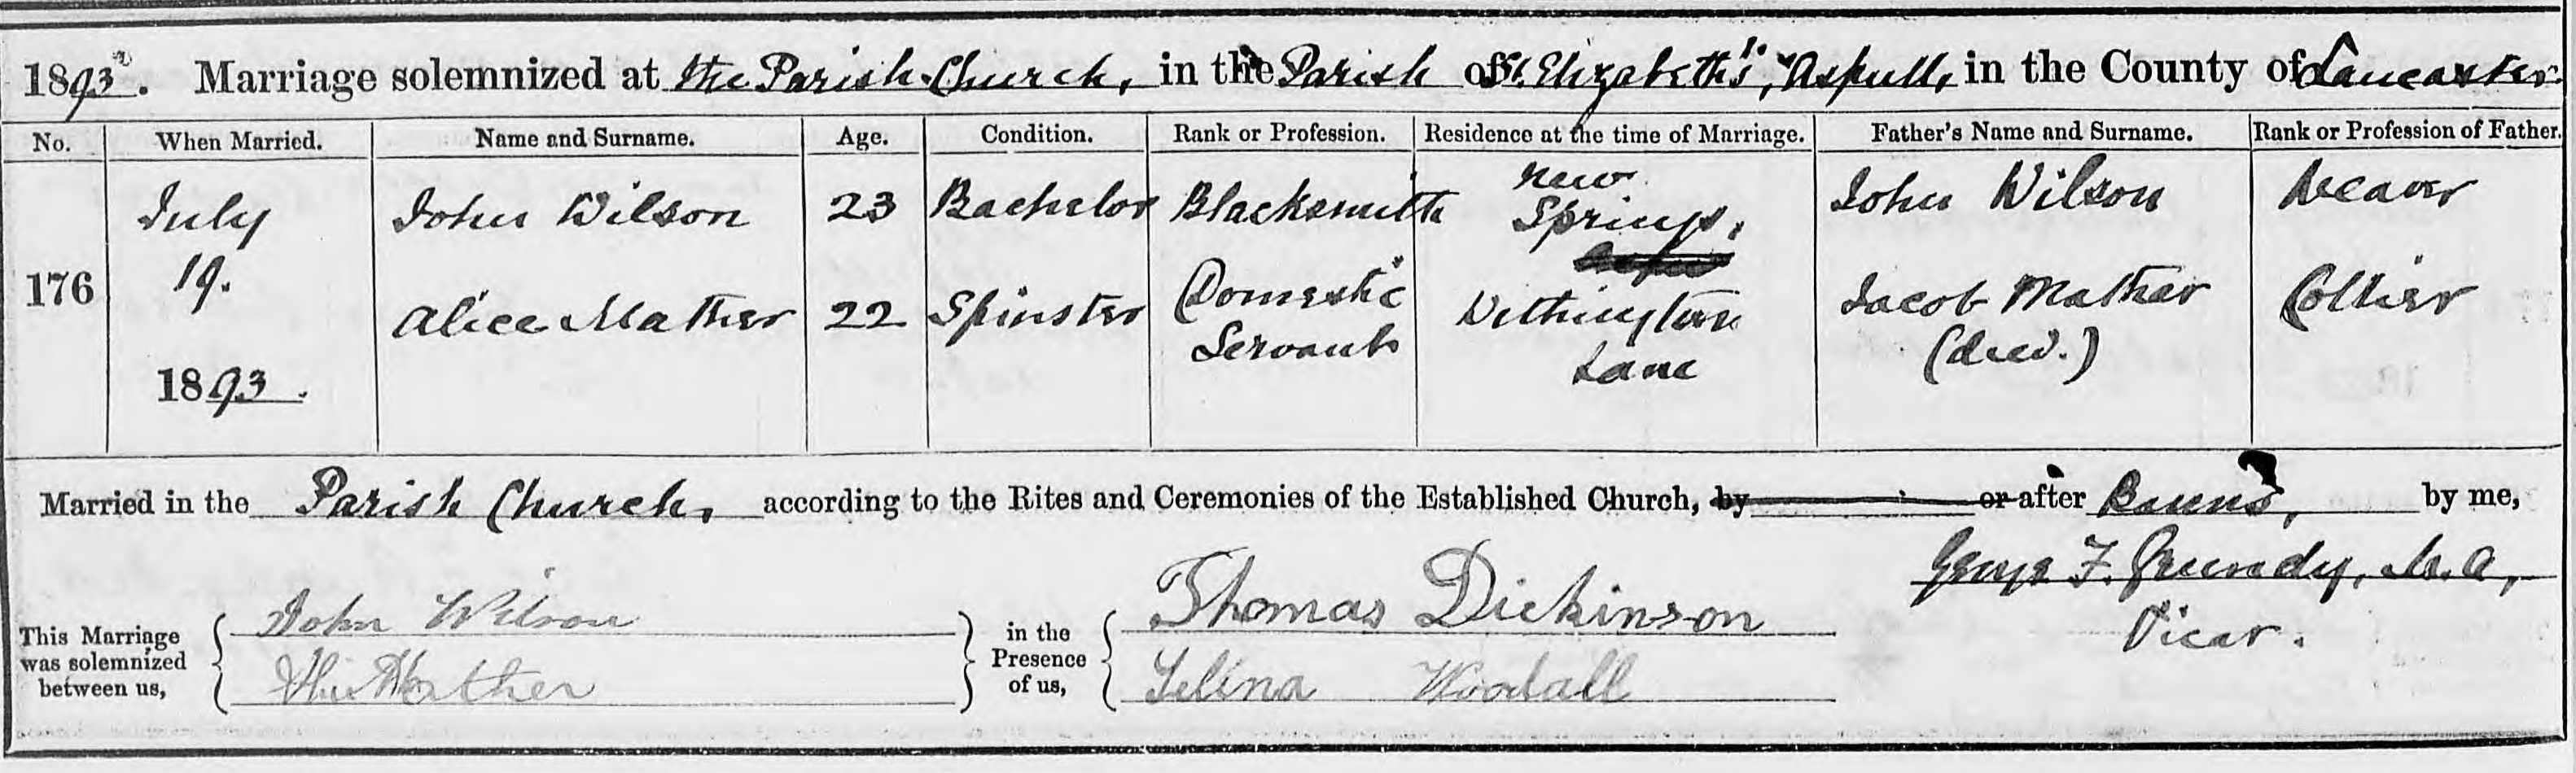 1893. Marriage solemnized at the Parish Church, in the Parish of St. Elizabeth's, Aspull, in the County of Lancaster.
No. When Married. Name and Surname. Age. Condition. Rank or Profession. Residence at the time of Marriage. Father's Name and Surname. Rank or Profession of Father.
176 July 19. 1893.
John Wilson 23 Bachelor Blacksmith New Springs, John Wilson Weaver
Alice Mather 22 Spinster Domestic Servant Withington Lane Jacob Mather (decd.) Collier
Married in the Parish Church, according to the Rites and Ceremonies of the Established Church, by or after Banns, by me,
George F. Grundy, M.A,
Vicar.
This Marriage was solemnized between us,
John Wilson
Alice Mather
in the Presence of us,
Thomas Dickinson
Selina Woodall